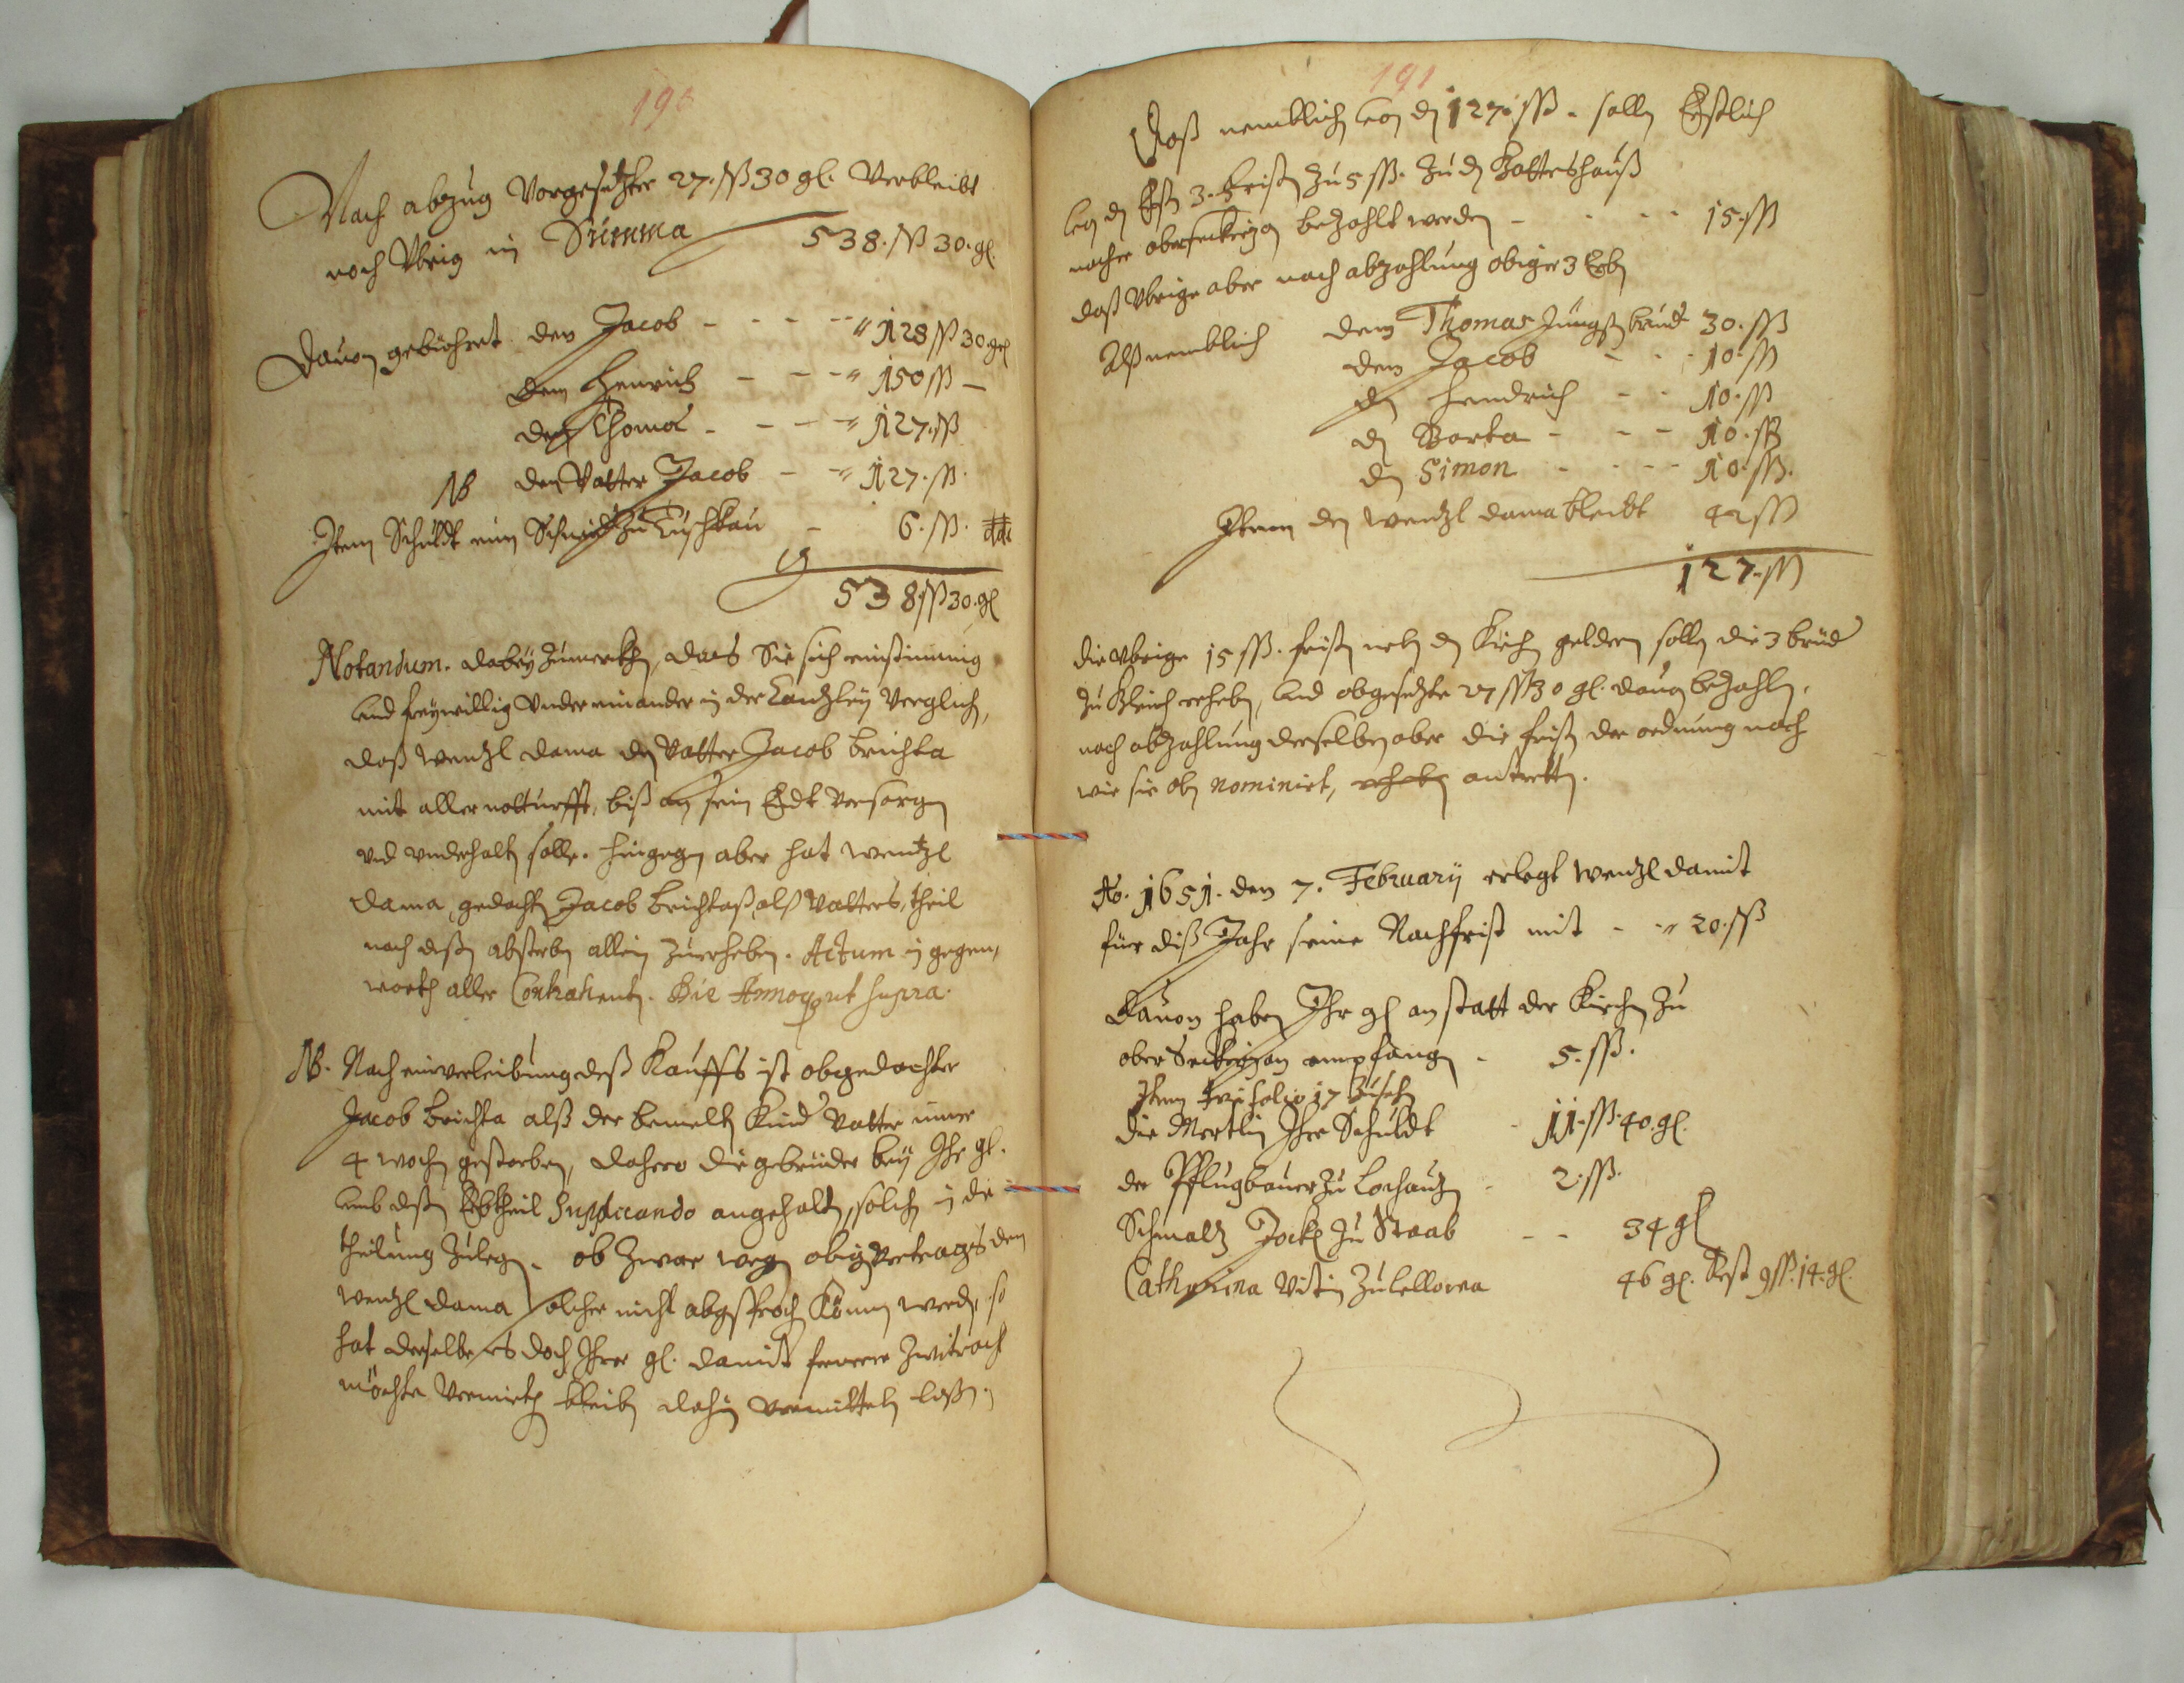 190
Nach abzug Vorgesetzter 27. ßß 30 gl. Verbleibt
noch Vbrig in Summa 538. ßß 30. gl.
Dauon gebühret den Jacob - - - - 128 ßß 30. gl
dem Henrich - - - 150 ßß -
dem Thoma - - - - 127. ßß
NB den Vatter Jacob - - 127. ßß.
Item Schuldt eim Schmidt zu Tuschkau - 6. ßß.
538 ßß 30. gl
Notandum. dabeÿ zumerkhen, das Sie sich einstimmig
und freÿwillig Vnder einander in der Cantzleÿ Verglichen,
daß Wentzl Dama den Vatter Jacob Brichta
mit aller notturfft, biß an sein Endt Versorgen
vnd vnderhalten solle. hingegen aber hat Wentzl
Dama, gedachten Jacob Brichtaß, alß Vatters, theil
nach deßen absterben allein zuerheben. Actum in gegen,
warth aller Contrahenten. Die Annoque ut supra.
NB. Nach einverleibung deß Kauffs ist obgedachter
Jacob Brichta alß der bemelten Kinder Vatter inner
4 wochen gestorben, dahero die gebrüder beÿ Ihr gl.
umb deßen Erbtheil Supplicando angehalten, solchen in die
theilung zulegen. ob zwar wegen obigen Vertrags den
Wentzl Dama solcher nicht abgesprochen können werden, so
hat derselbe es doch Ihrer gl. damit fernere Zwitracht
möchte Vermiten bleiben dahin vermitteln laßen.
191
Daß nemblich von den 127. ßß. sollen Erstlich
von den Ersten 3. Fristen zu 5 ßß. zu den Gotteshauß
nacher oberseckerzan bezahlt werden - - - - 15. ßß
daß Vbrige aber nach abzahlung obiger 3 Erben
Alß nemblich dem Thomas Jüngsten bruder 30. ßß
den Jacob - - - 10. ßß
den Hendrich - - 10. ßß
den Barta - - - 10. ßß
den Simon - - - - 10. ßß.
Item den Wentzl Dama bleibt 42 ßß
127. ßß
die vbrige 15 ßß. fristen neben den Kirchen geldern sollen die 3 brüder
zu gleich erheben, und obgesetzte 27 ßß 30 gl. dauon bezahlen,
nach abzahlung derselben aber die fristen der ordnung nach
wie sie oben nominirt, erheben antretten.
Ao. 1651. den 7. Februarÿ erlegt Wentzl Damit
für diß Jahr seine Nachfrist mit - - 20. ßß
Dauon haben Ihr gl an statt der Kirchen zu
ober Seckerzan empfangen - 5. ßß.
Item folio 17 zusehen
die Mertlin Ihre Schuldt - 11. ßß. 40. gl.
der Pflugbauer zu Lochautzen - 2. ßß.
Schmaltz Jockl zu Staab - - 34 gl
Catharina Vitin zu lellowa 46 gl. Rest 9 ßß. 14. gl.